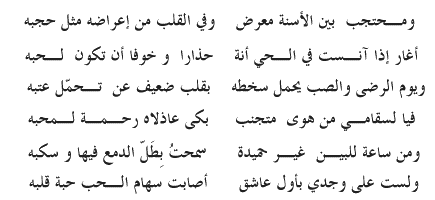 ومـــحتجب بين الأسنة معرض وفي القلب من إعراضه مثل حجبه
أغار إذا آنـــست في الـــحي أنة حذارا و خوفا أن تكون لـــحبه
ويوم الرضى والصب يحمل سخطه بقلب ضعيف عن تـــحمّل عتبه
فيا لسقامـــي من هوى متجنب بكى عاذلاه رحـــمة لـــمحبه
ومن ساعة للبيـــن غيـــر حميدة سمحتُ بِطَلّ الدمع فيها و سكبه
ولست على وجدي بأول عاشق أصابت سهام الـــحب حبة قلبه